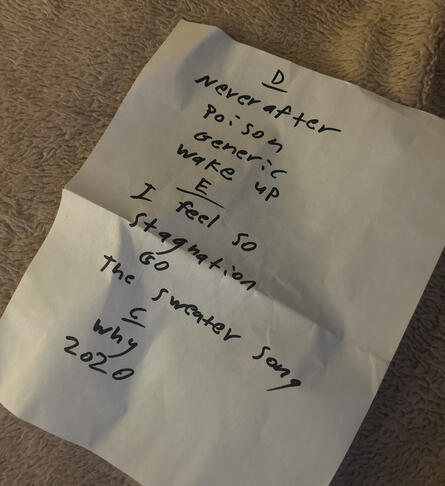 D
Never after
Poison
Generic
wake up
E
I feel so
Stagnation
GO
The sweater song
C
why
2020